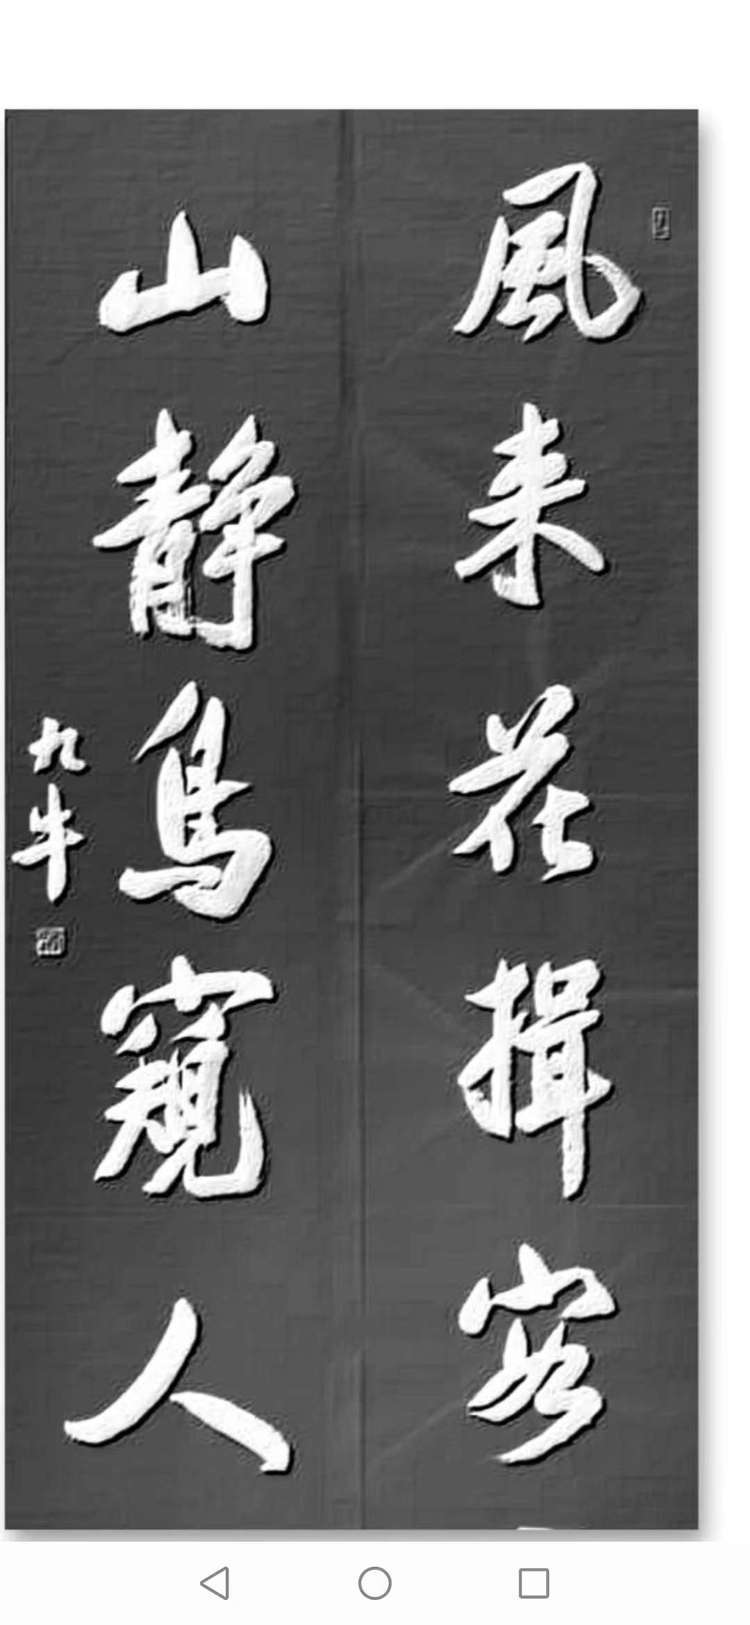 風来花揖客
山静鳥窺人
九牛